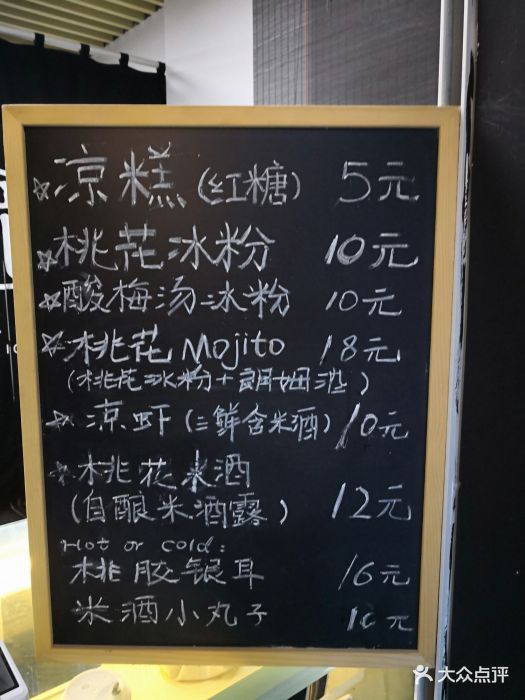 ☆凉糕(红糖) 5元
☆桃花冰粉 10元
☆酸梅汤冰粉 10元
☆桃花Mojito 18元
(桃花冰粉+朗姆酒)
☆凉虾(三鲜含米酒) 10元
☆桃花米酒
(自酿米酒露) 12元
Hot or cold:
桃胶银耳 16元
米酒小丸子 10元
大众点评